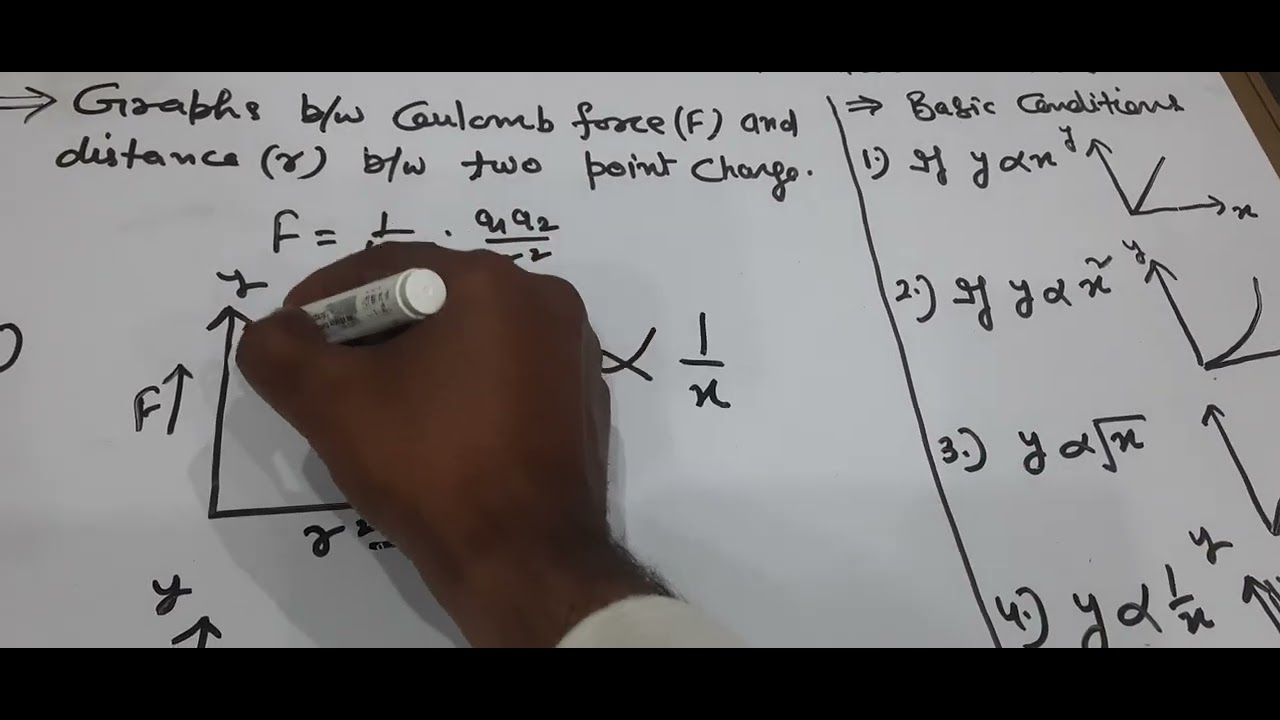 ⇒ Graphs b/w Coulomb force (F) and
distance (r) b/w two point Charge.
F = 1 . q1 q2
2
y
F↑
r 2
∝ 1/x
y
⇒ Basic Conditions
1.) If y ∝ x
y
x
2.) If y ∝ x²
y
3.) y ∝ √x
4.) y ∝ 1/x
y